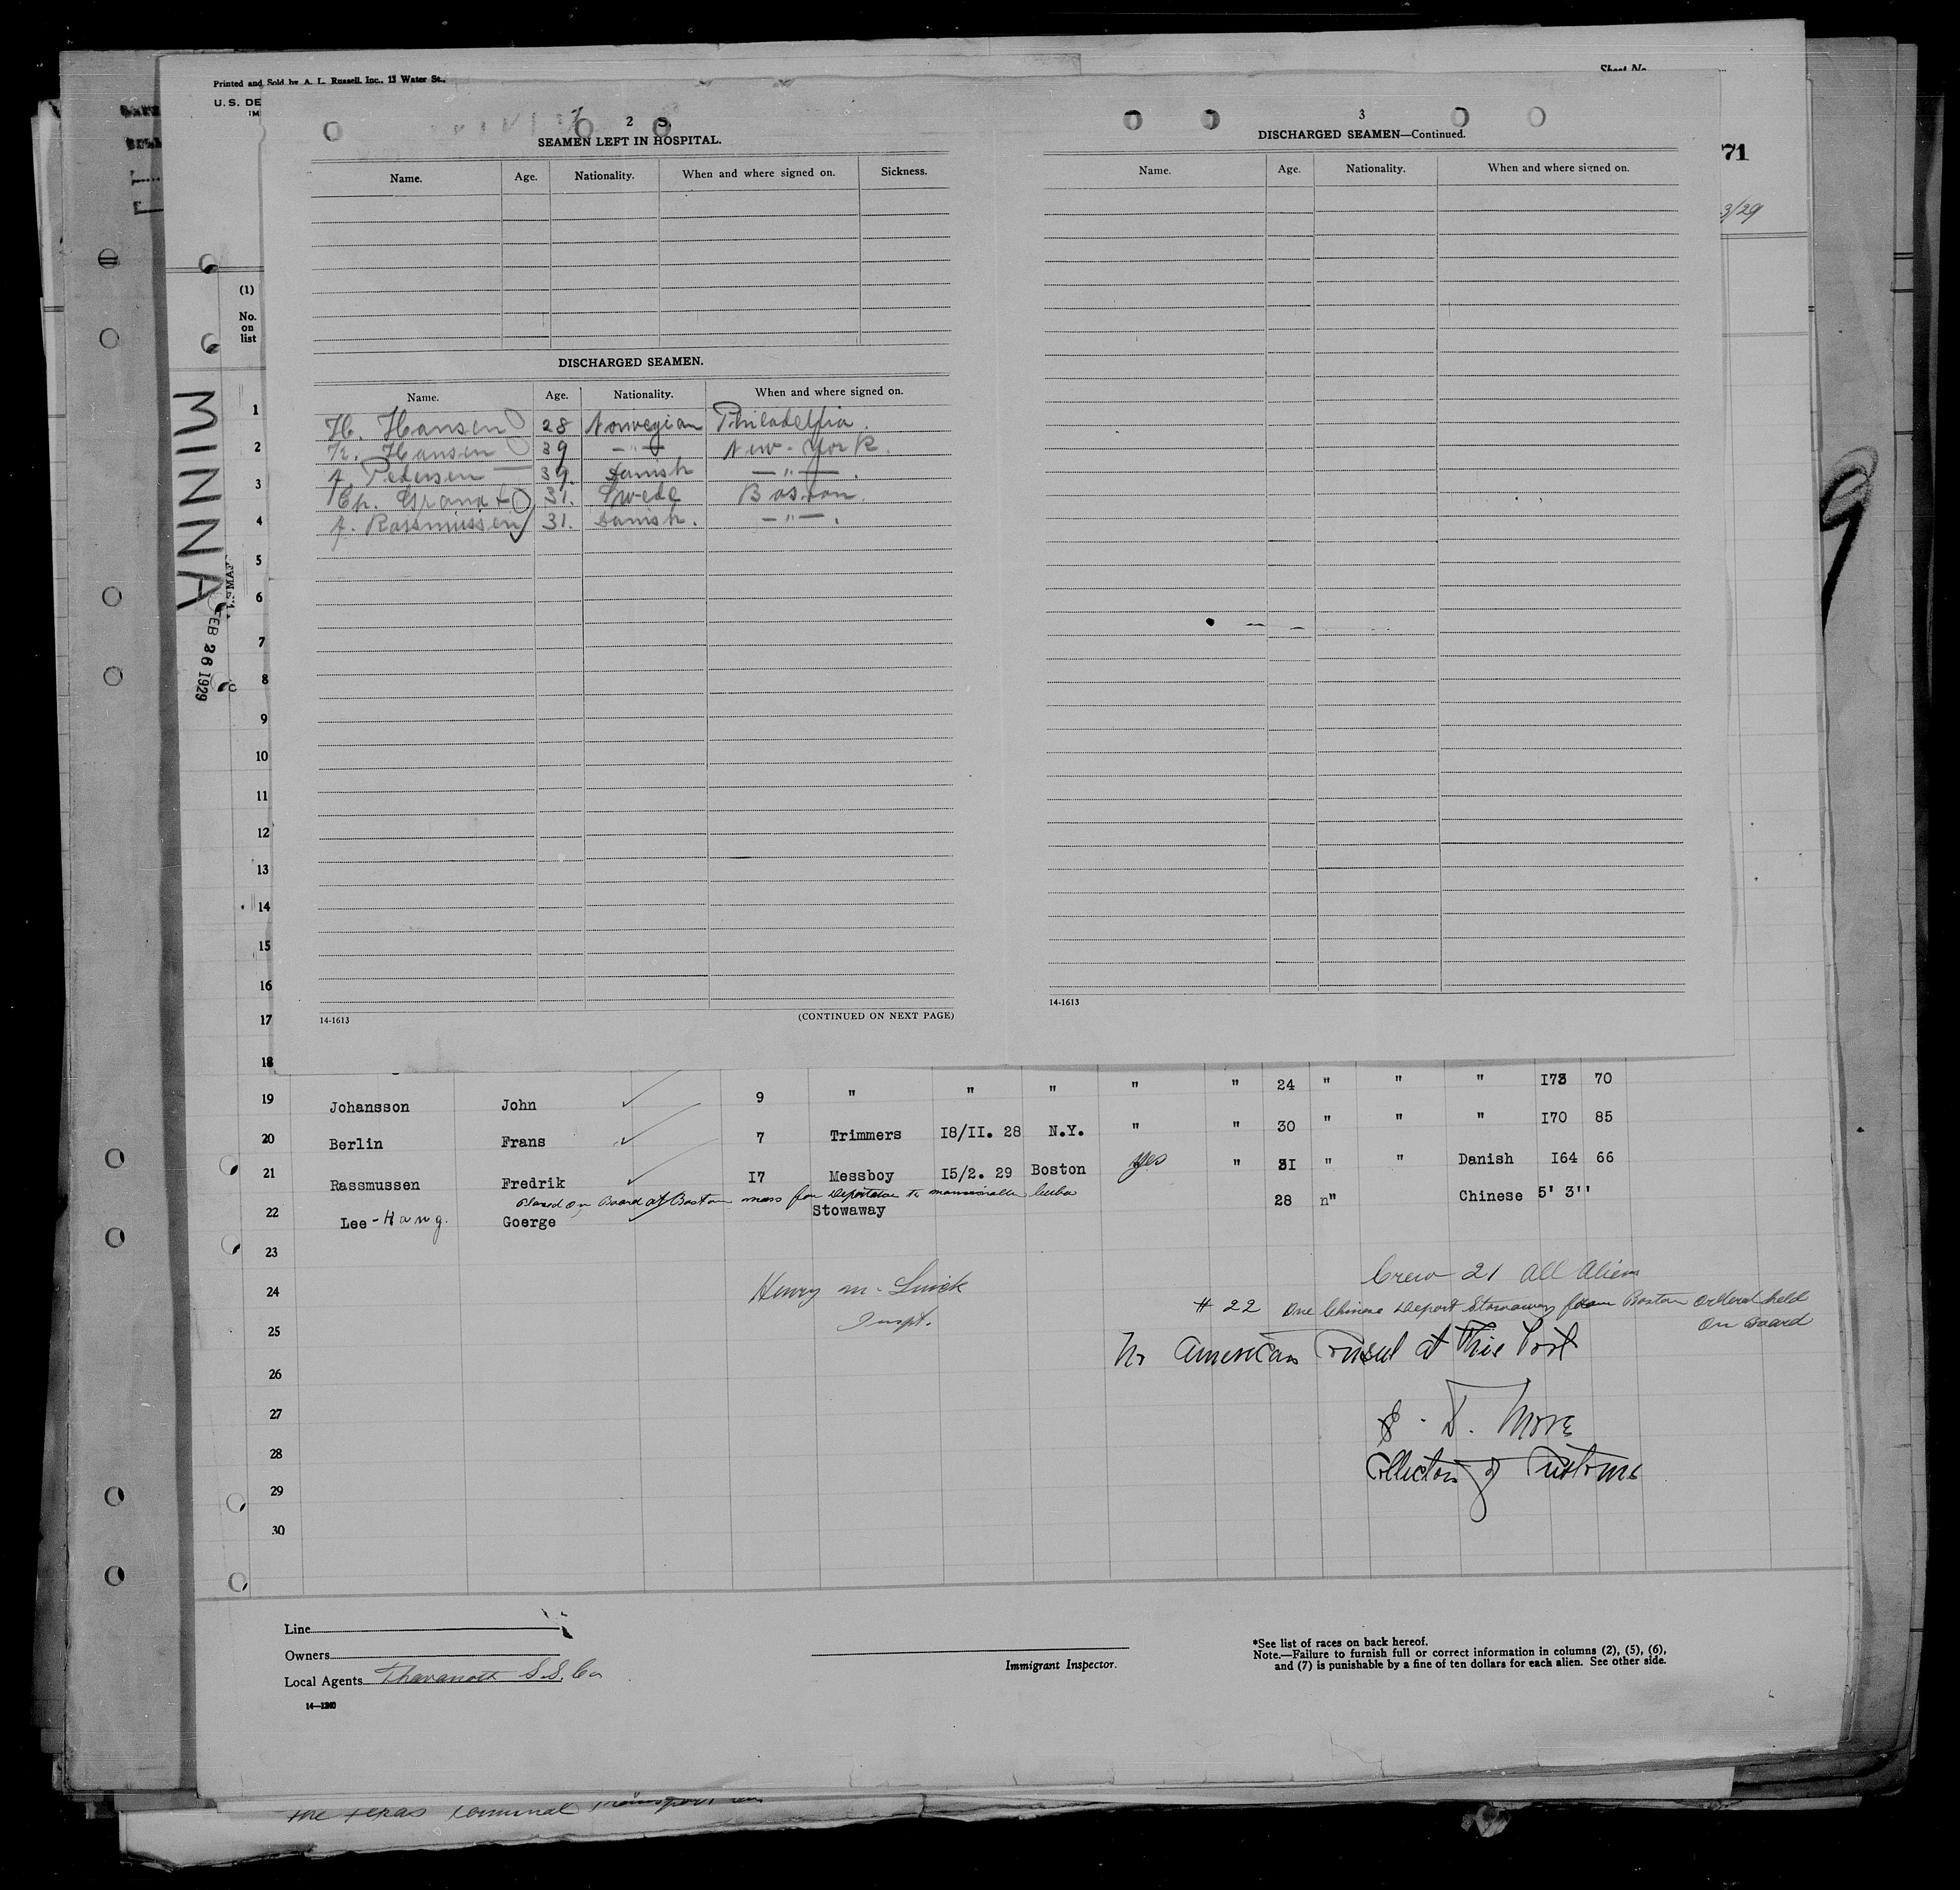 Printed and Sold by A. L. Russell, Inc., 13 Water St.,
Sheet No.
U. S. DE
IM
71
3/29
2
SEAMEN LEFT IN HOSPITAL.
Name. Age. Nationality. When and where signed on. Sickness.
DISCHARGED SEAMEN.
Name. Age. Nationality. When and where signed on.
H. Hansen 28 Norwegian Philadelfia.
Hansen 39 — " — New-York.
A. Pedersen 39. Danish — " —.
31. Swede Boston.
A. Rassmussen 31. Danish. — " —.
14-1613 (CONTINUED ON NEXT PAGE)
3
DISCHARGED SEAMEN—Continued.
Name. Age. Nationality. When and where signed on.
14-1613
MINNA
FEB 26 1929
9
(1)
No.
on
list
1
2
3
4
5
6
7
8
9
10
11
12
13
14
15
16
17
18
19 Johansson John 9 " " " " " 24 " " " I73 70
20 Berlin Frans 7 Trimmers I8/II. 28 N.Y. " " 30 " " " I70 85
21 Rassmussen Fredrik I7 Messboy I5/2. 29 Boston yes " 3I " " Danish I64 66
Placed on Board at Boston mass for Cuba
22 Lee-Hang. Goerge Stowaway 28 n" Chinese 5' 3''
23
24
25
26
27
28
29
30
Henry M.
Inspt.
Crew 21 all Aliens
# 22 One Chinese Deport Stowaway from Boston Ordered held
On Board
No American Consul at This Port
D. More
Collector of Customs
Line
Owners
Local Agents S.S. Co
14—1240
Immigrant Inspector.
*See list of races on back hereof.
Note.—Failure to furnish full or correct information in columns (2), (5), (6),
and (7) is punishable by a fine of ten dollars for each alien. See other side.
the Texas Terminal Transport